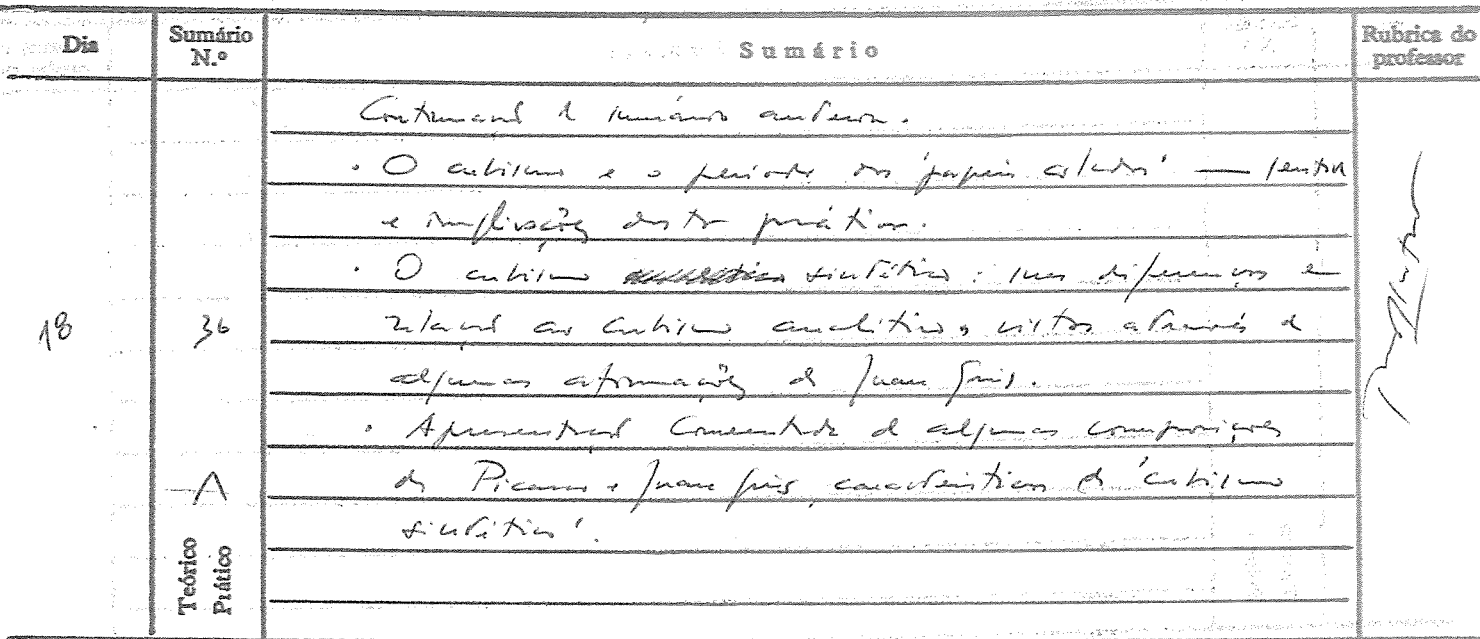 Dia
Sumário N.º
Sumário
Rubrica do professor
Continuação do sumário anterior.
· O cubismo e o período dos 'papéis colados' — sentido
e implicações desta prática.
· O cubismo sintético: suas diferenças em
relação ao cubismo analítico, vistas através de
algumas afirmações de Juan Gris.
· Apresentação comentada de algumas composições
de Picasso e Juan Gris, características do 'cubismo
sintético'.
18
36
A
Teórico
Prático